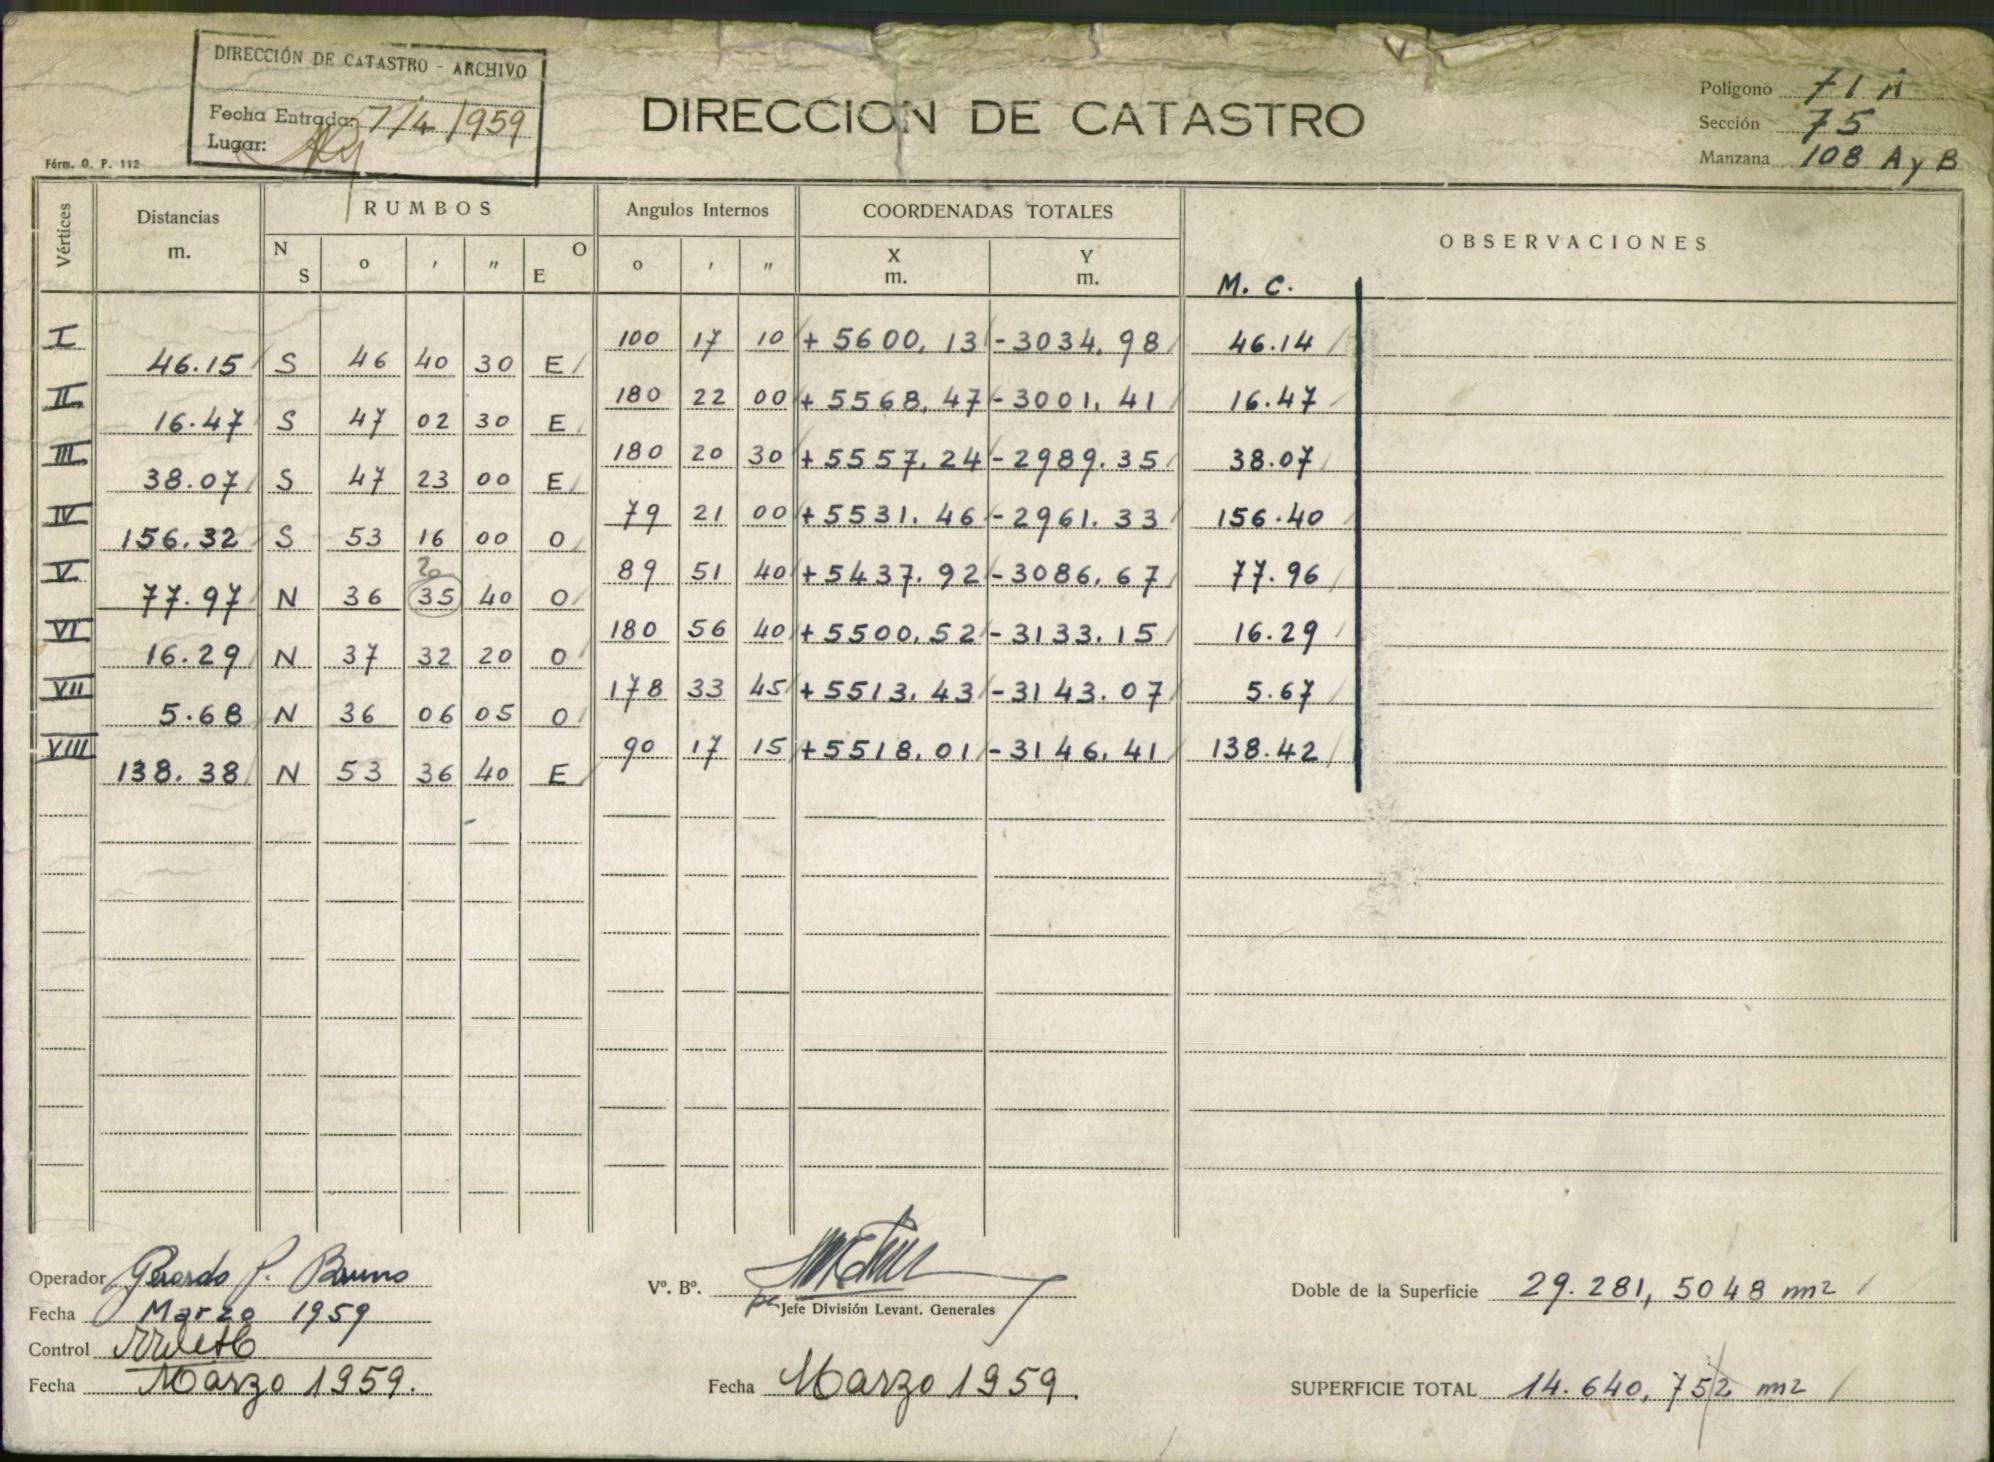 DIRECCIÓN DE CATASTRO - ARCHIVO
Fecha Entrada: 7/4/1959
Lugar:
Fórm. O. P. 112
DIRECCION DE CATASTRO
Polígono 71 A
Sección 75
Manzana 108 A y B
Vértices Distancias m. RUMBOS Angulos Internos COORDENADAS TOTALES OBSERVACIONES
N S o ' " O E o ' " X m. Y m. M. C.
I 100 17 10 + 5600,13 - 3034,98 46.14
46.15 S 46 40 30 E
II 180 22 00 + 5568,47 - 3001,41 16.47
16.47 S 47 02 30 E
III 180 20 30 + 5557,24 - 2989.35 38.07
38.07 S 47 23 00 E
IV 79 21 00 + 5531,46 - 2961.33 156.40
156.32 S 53 16 00 O
20
V 89 51 40 + 5437,92 - 3086,67 77.96
77.97 N 36 35 40 O
VI 180 56 40 + 5500,52 - 3133.15 16.29
16.29 N 37 32 20 O
VII 178 33 45 + 5513,43 - 3143.07 5.67
5.68 N 36 06 05 O
VIII 90 17 15 + 5518,01 - 3146,41 138.42
138.38 N 53 36 40 E
Operador Gerardo P. Bruno
Fecha Marzo 1959
Control
Fecha Marzo 1959.
Vº. Bº.
Jefe División Levant. Generales
Fecha Marzo 1959.
Doble de la Superficie 29.281,5048 m2
SUPERFICIE TOTAL 14.640,752 m2